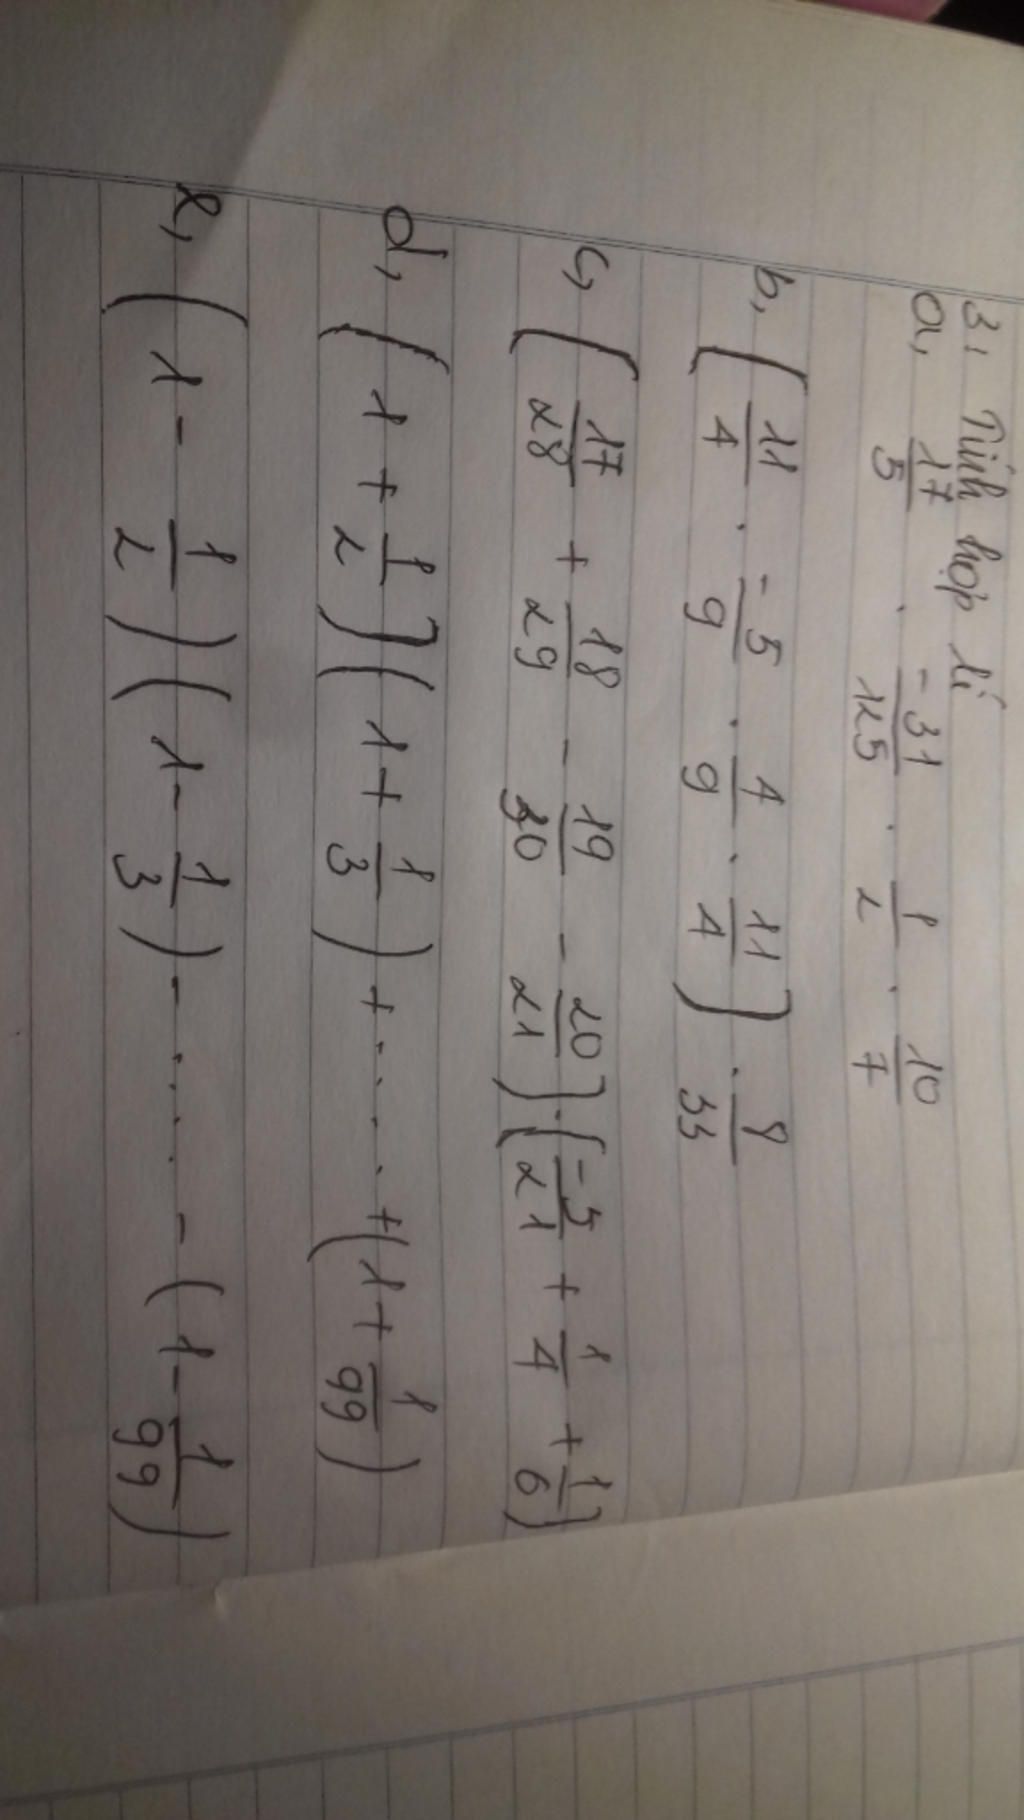 3, Tính hợp lí
a, 17/5 . -31/125 . 1/2 . 10/7
b, (11/4 . -5/9 . 4/9 . 11/4) . 8/33
c, (17/28 + 18/29 - 19/30 - 20/21) . (-5/21 + 1/4 + 1/6)
d, (1 + 1/2)(1 + 1/3) + .... + (1 + 1/99)
e, (1 - 1/2)(1 - 1/3) - .... - (1 - 1/99)